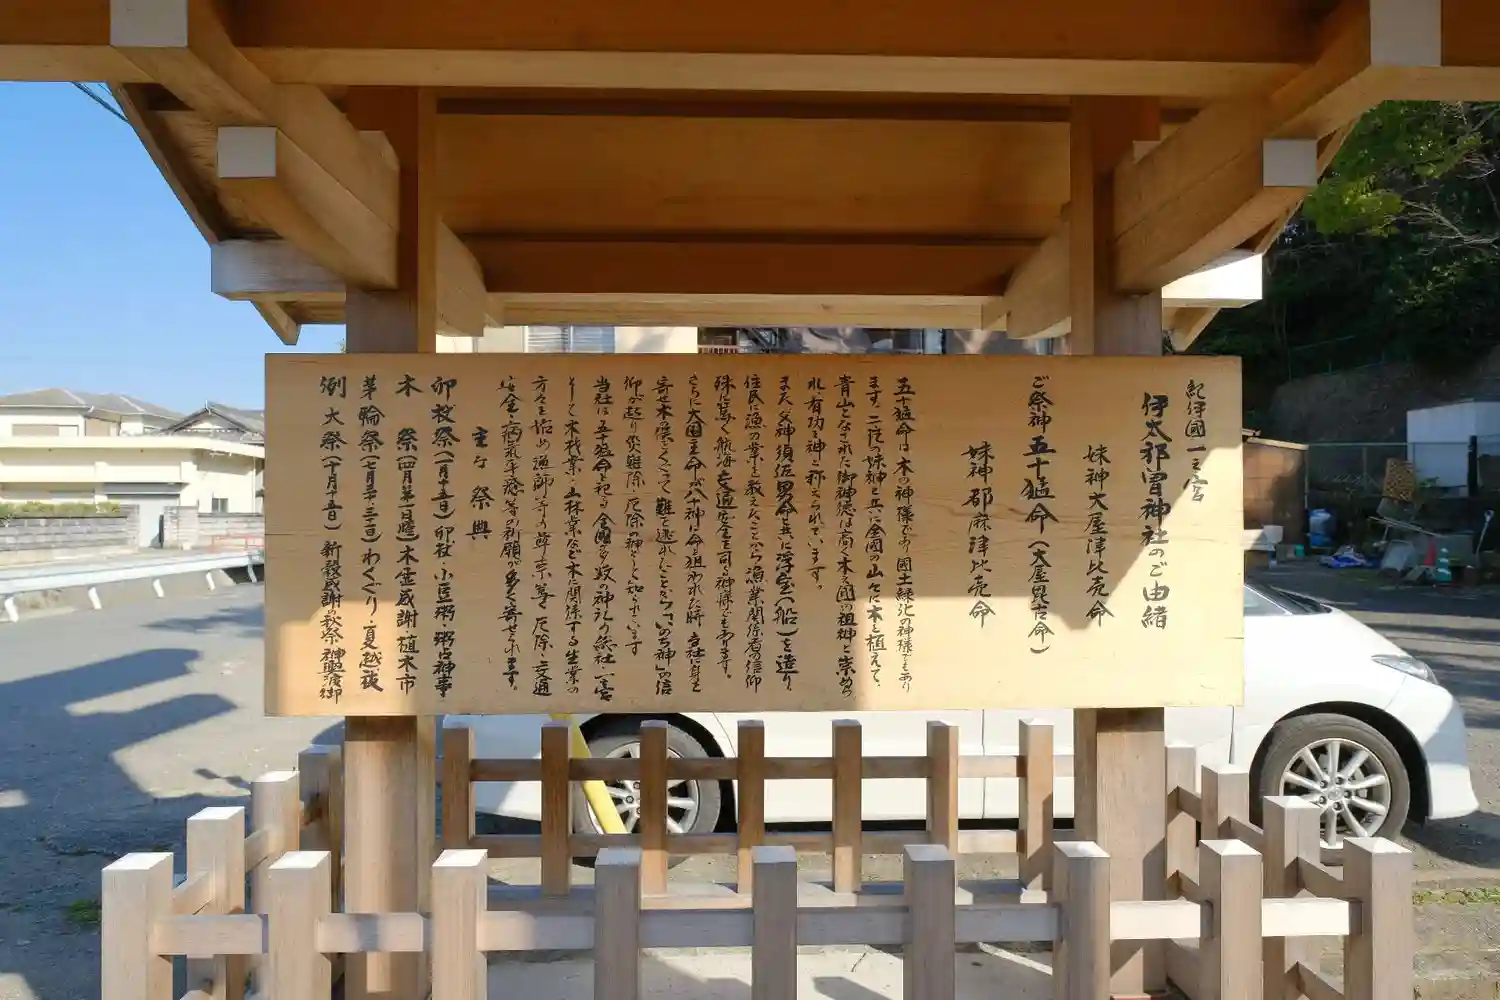 紀伊國一之宮
伊太祁曽神社のご由緒
妹神大屋津比売命
ご祭神 五十猛命(大屋毘古命)
妹神都麻津比売命
五十猛命は、木の神様であり国土緑化の神様でもあり
ます。二柱の妹神と共に全国の山々に木を植えて、
青山となされた御神徳は高く木の国の祖神と崇めら
れ、有功の神と称えられています。
また、父神須佐男命と共に浮宝(船)を造り
住民に漁の業を教えたことから漁業関係者の信仰
殊に篤く航海、交通安全を司る神様でもあります。
さらに大国主命が八十神に命を狙われた時、当社に身を
寄せ木の俣をくぐって難を逃れたことから「いのち神」の信
仰が起り災難除、厄除の神として知られています
当社は五十猛命を祀る全国多数の神社の総社・一宮
として木材業・山林業など木に関係する生業の
方々を始め漁師等の尊崇篤く厄除・交通
安全・病気平癒等の祈願が多く寄せられます。
主な祭典
卯杖祭(一月十五日)卯杖・小豆粥・粥占神事
木祭(四月第一日曜)木霊感謝・植木市
茅輪祭(七月三十・三十一日)わくぐり・夏越祓
例大祭(十月十五日)新穀感謝の秋祭・神輿渡御